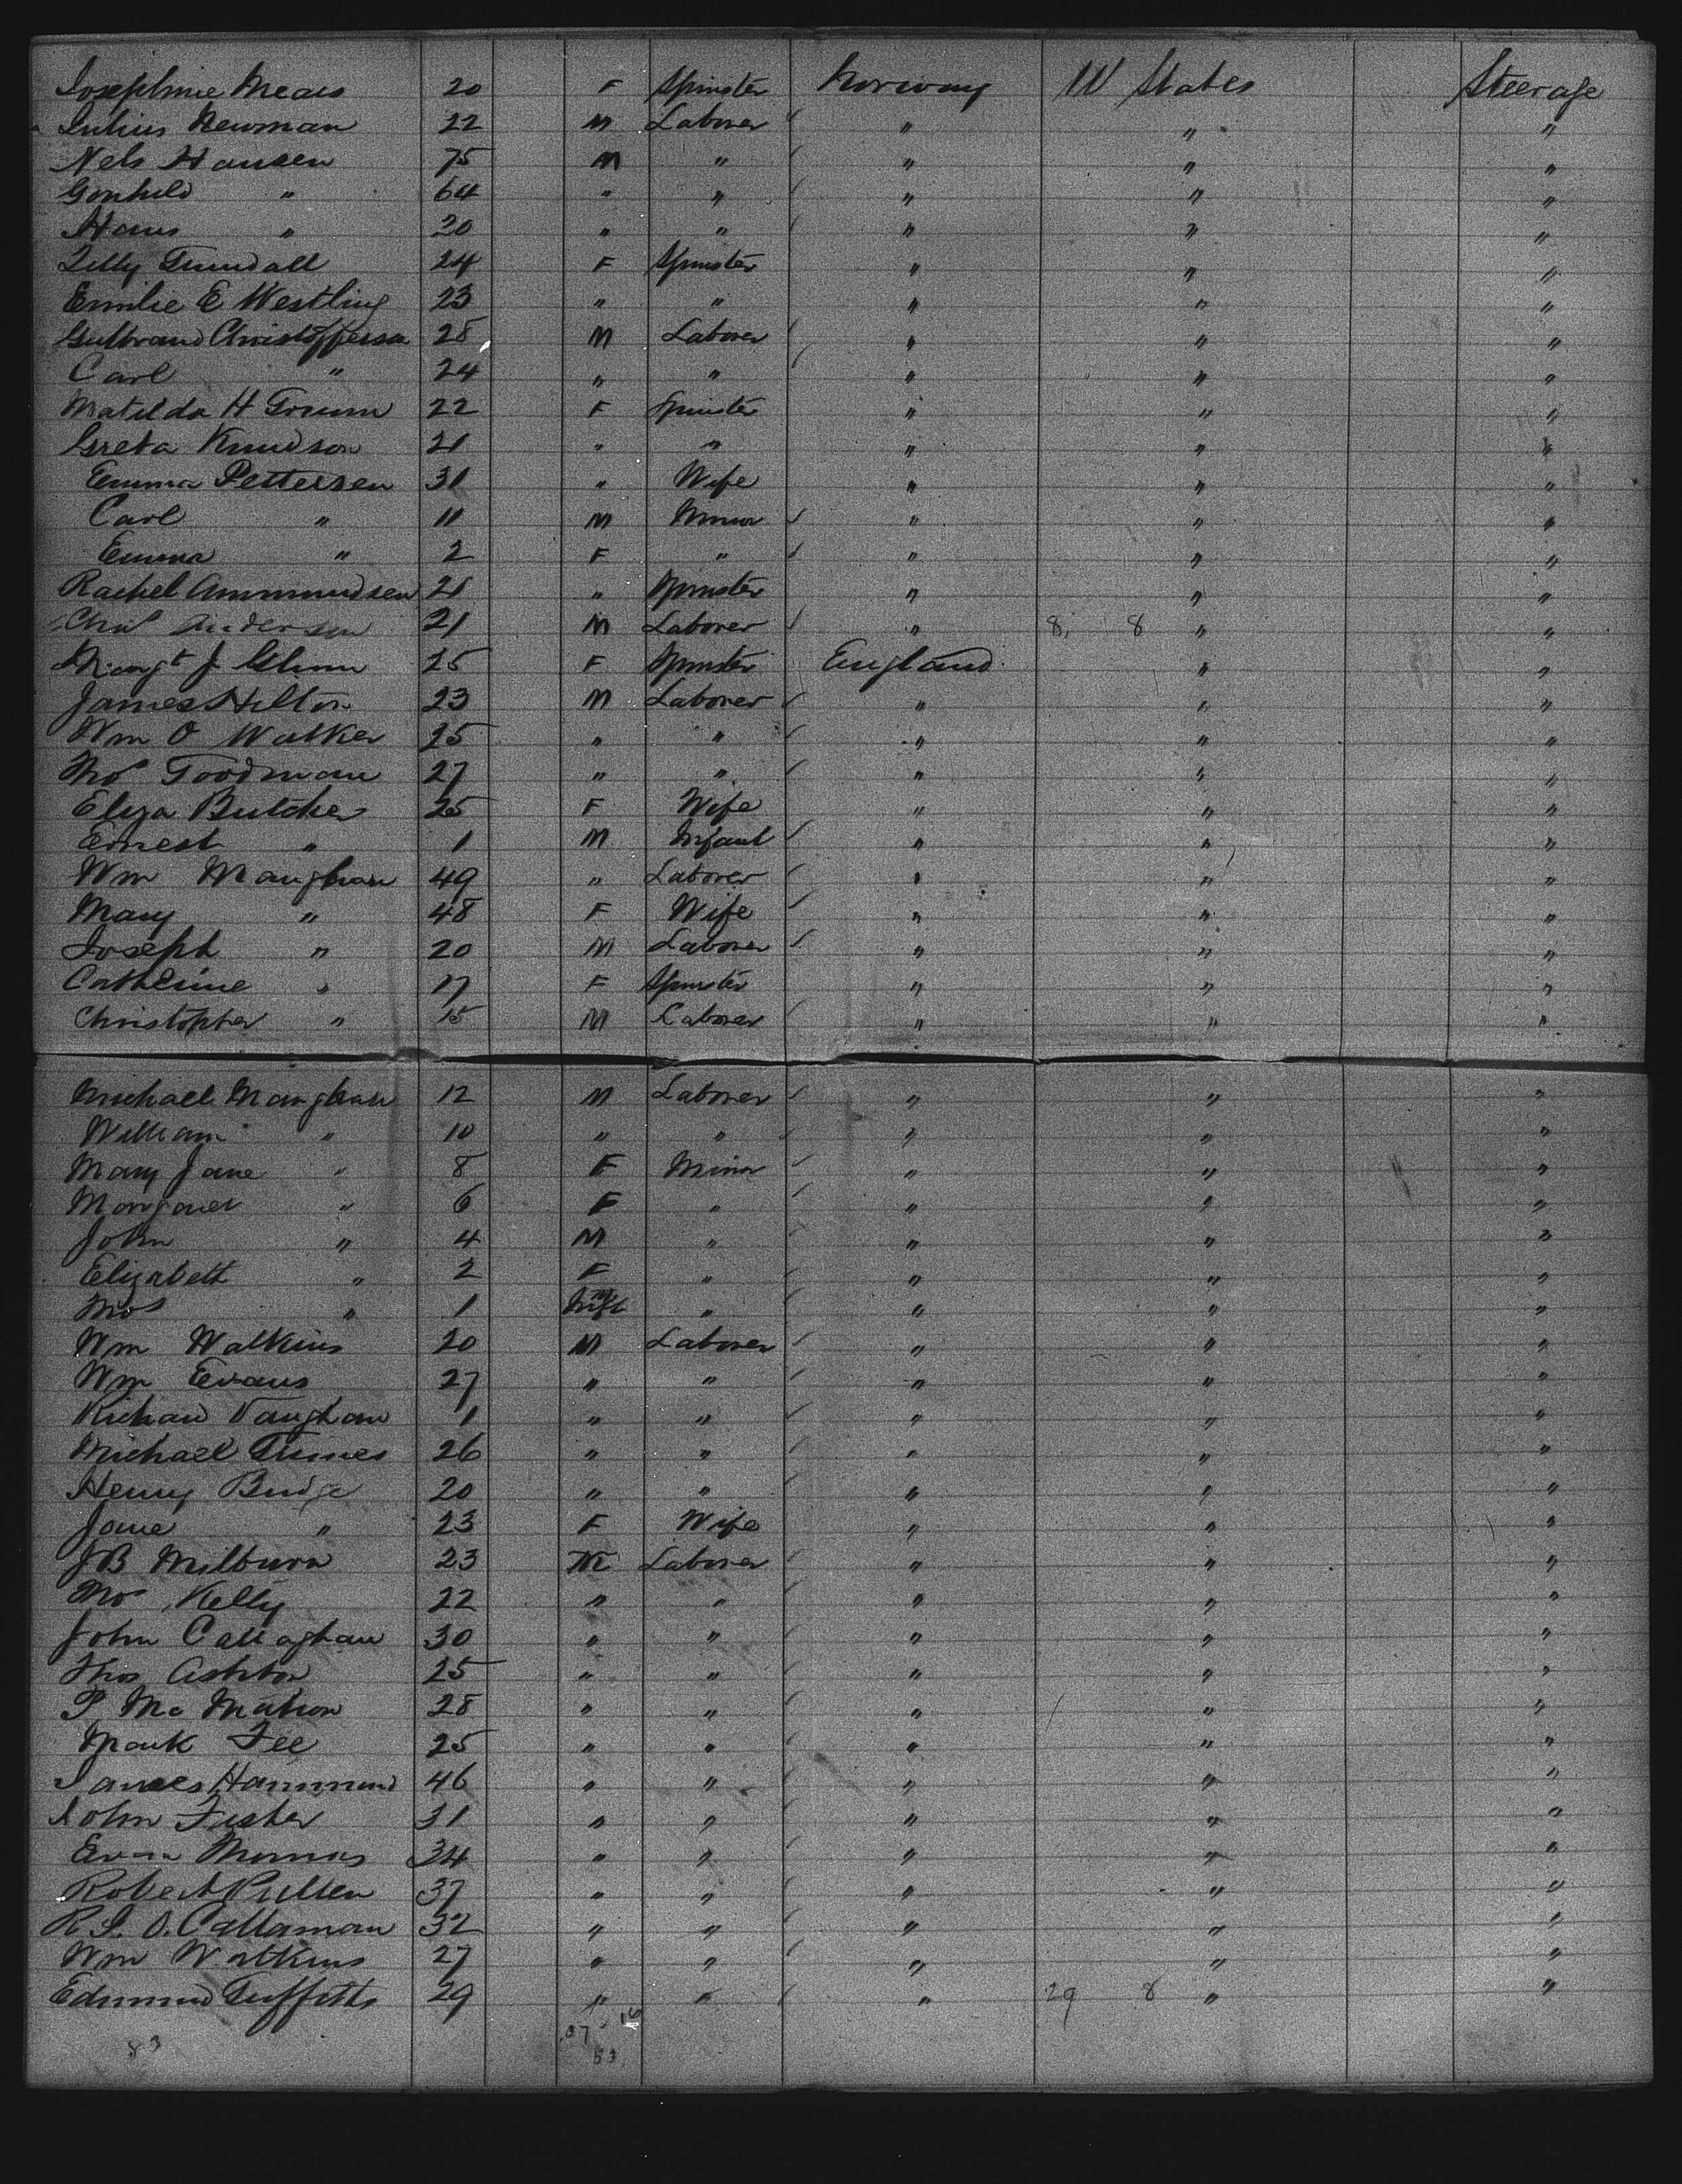 Josephine Meais 20 F Spinster Norway U States Steerage
Julius Newman 22 M Laborer " " "
Nels Hansen 75 M " " " "
Gunhild " 64 " " " " "
Hans " 20 " " " " "
Lilly Trundall 24 F Spinster " " "
Emilie E Westling 23 " " " " "
Gulbrand Christoffersen 28 M Laborer " " "
Carl " 24 " " " " "
Matilda H 22 F Spinster " " "
Greta Knudson 21 " " " " "
Emma Pettersen 31 " Wife " " "
Carl " 11 M Minor " " "
Emma " 2 F " " " "
Rachel Ammundsen 21 " Spinster " " "
Anderson 21 M Laborer " 8, 8 " "
Margt J Glynn 25 F Spinster England " "
James Hilton 23 M Laborer " " "
Wm O Walker 25 " " " " "
Thos Goodman 27 " " " " "
Eliza Butcher 25 F Wife " " "
Ernest " 1 M Infant " " "
Wm Maughan 49 " Laborer " " "
Mary " 48 F Wife " " "
Joseph " 20 M Laborer " " "
Catherine " 17 F Spinster " " "
Christopher " 15 M Laborer " " "
Michael Maughan 12 M Laborer " " "
William " 10 " " " " "
Mary Jane " 8 F Minor " " "
Margaret " 6 F " " " "
John " 4 M " " " "
Elizabeth " 2 F " " " "
Thos " 1 Inft " " " "
Wm Watkins 20 M Laborer " " "
Wm Evans 27 " " " " "
Richard Vaughan 1 " " " " "
Michael 26 " " " " "
Henry Budge 20 " " " " "
Jane " 23 F Wife " " "
JB Milburn 23 M Laborer " " "
Thos Kelly 22 " " " " "
John Callaghan 30 " " " " "
Thos Ashton 25 " " " " "
P. Mc Mahon 28 " " " " "
Mark Fee 25 " " " " "
James Hammond 46 " " " " "
John Fisher 31 " " " " "
Evan Thomas 34 " " " " "
Robert Pullen 37 " " " " "
R.S. O. Callaman 32 " " " " "
Wm Watkins 27 " " " " "
Edmund Tuffitts 29 " " " 29 8 " "
83